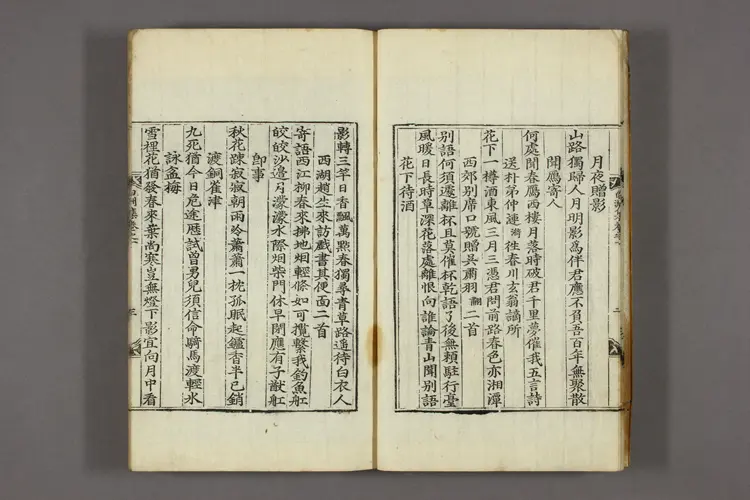 月夜贈影
山路獨歸人月明影為伴君應不負吾百年無聚散
聞鴈寄人
何處聞春鴈西樓月落時破君千里夢催我五言詩
送朴弟仲連往春川玄翁謫所
花下一樽酒東風三月三憑君問前路春色亦湘潭
西郊別席口號贈吳肅羽翻二首
別語何須遽離杯且莫催杯乾語了後無賴駐行臺
風暖日長時草深花落處離恨向誰論青山聞別語
花下待酒
影轉三竿日香飄萬點春獨尋青草路遙待白衣人
西湖趙生來訪戲書其便面二首
寄語西江柳春來拂地烟輕條如可攬繫我釣魚舡
皎皎沙邊月濛濛水際烟柴門休早閉應有子猷舡
卽事
秋花踈寂寂朝雨冷蕭蕭一枕孤眠起鑪香半已銷
渡銅雀津
九死猶今日危途歷試曾男兒須信命騎馬渡輕氷
詠盆梅
雪裡花猶發春來葉尚寒豈無燈下影宜向月中看